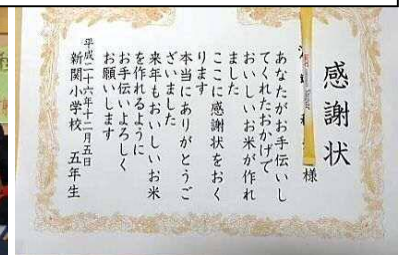 感謝状
様
あなたがお手伝いし
てくれたおかげで
おいしいお米が作れ
ました
ここに感謝状をおく
ります
本当にありがとうご
ざいました
来年もおいしいお米
を作れるように
お手伝いよろしく
お願いします
平成二十六年十二月五日
新関小学校 五年生